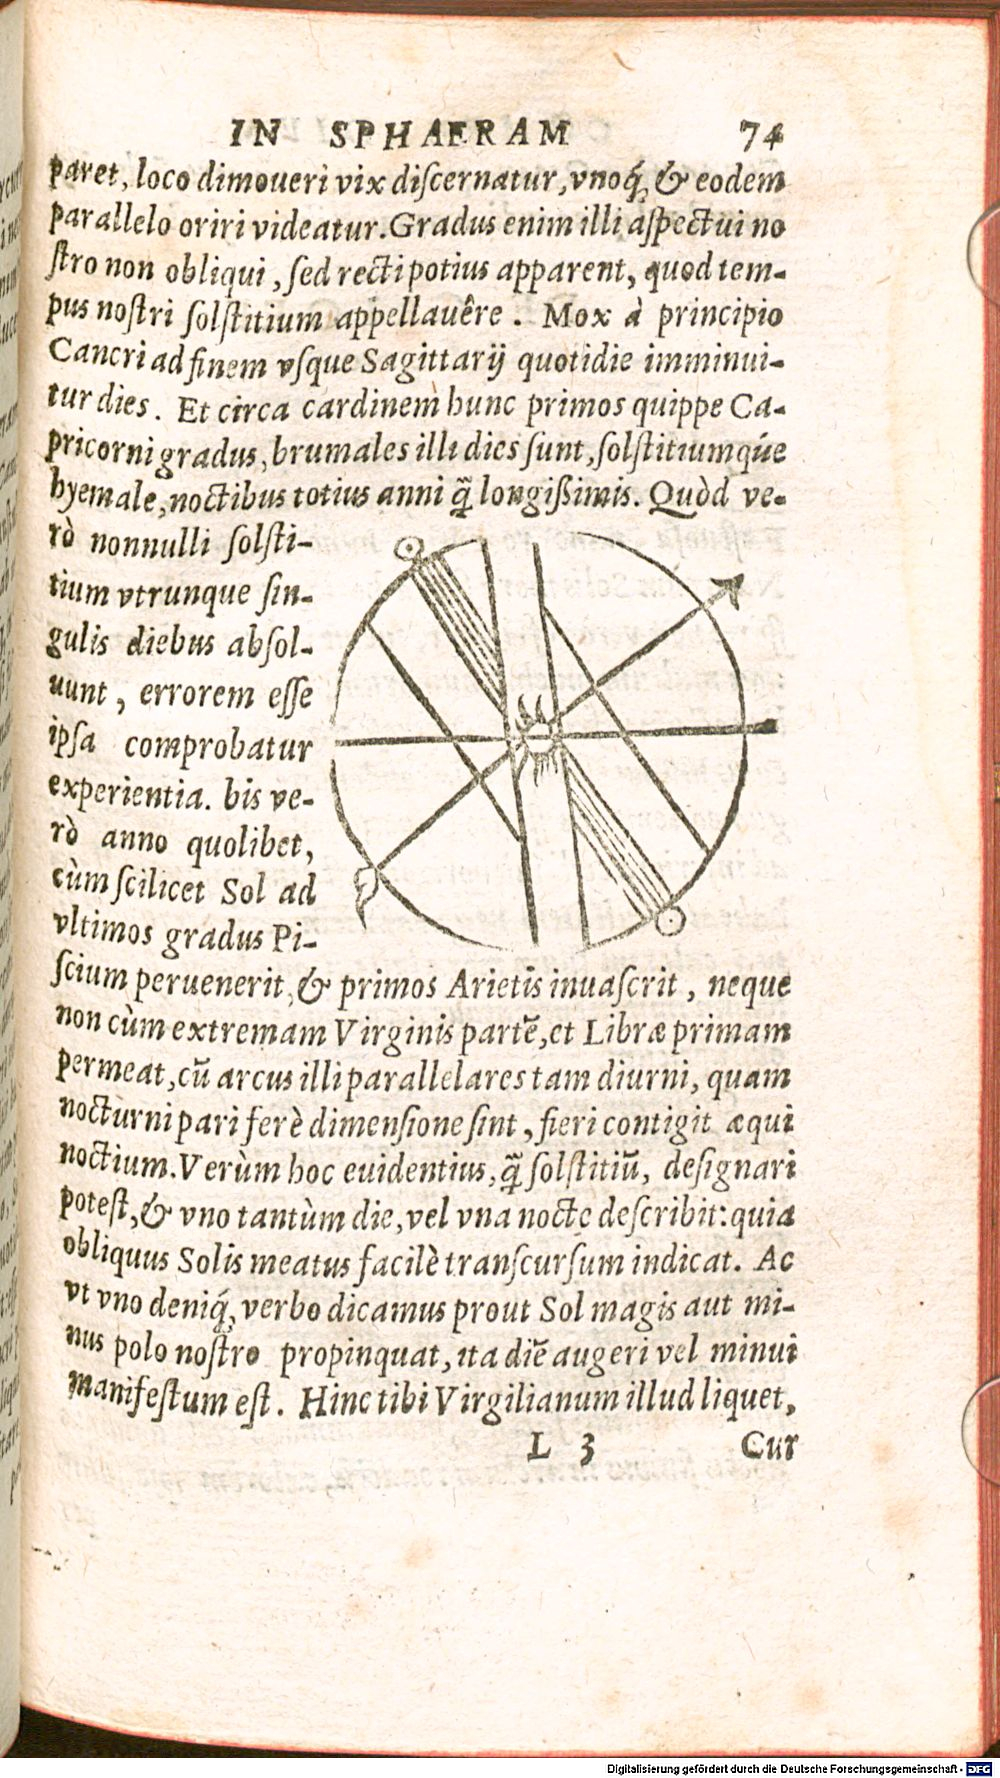 IN SPHAERAM 74
paret, loco dimoueri vix diſcernatur, vnoq́, & eodem
parallelo oriri videatur. Gradus enim illi aſpectui no
ſtro non obliqui, ſed recti potius apparent, quod tem-
pus noſtri ſolſtitium appellauêre. Mox à principio
Cancri ad finem vſque Sagittarij quotidie imminui-
tur dies. Et circa cardinem hunc primos quippe Ca-
pricorni gradus, brumales illi dies ſunt, ſolſtitiumq́ue
hyemale, noctibus totius anni q̃ longißimis. Quòd ve-
rò nonnulli ſolſti-
tium vtrunque ſin-
gulis diebus abſol-
uunt, errorem eſſe
ipſa comprobatur
experientia. bis ve-
rò anno quolibet,
cùm ſcilicet Sol ad
vltimos gradus Pi-
ſcium peruenerit, & primos Arietis inuaſcrit, neque
non cùm extremam Virginis partē, et Libræ primam
permeat, cū arcus illi parallelares tam diurni, quam
nocturni pari ferè dimenſione ſint, fieri contigit æqui
noctium. Verùm hoc euidentius, q̃ ſolſtitiū, deſignari
poteſt, & vno tantùm die, vel vna nocte deſcribit: quia
obliquus Solis meatus facilè tranſcurſum indicat. Ac
vt vno deniq́, verbo dicamus prout Sol magis aut mi-
nus polo noſtro propinquat, ita diē augeri vel minui
manifeſtum eſt. Hinc tibi Virgilianum illud liquet,
L 3 Cur
Digitalisierung gefördert durch die Deutsche Forschungsgemeinschaft - DFG